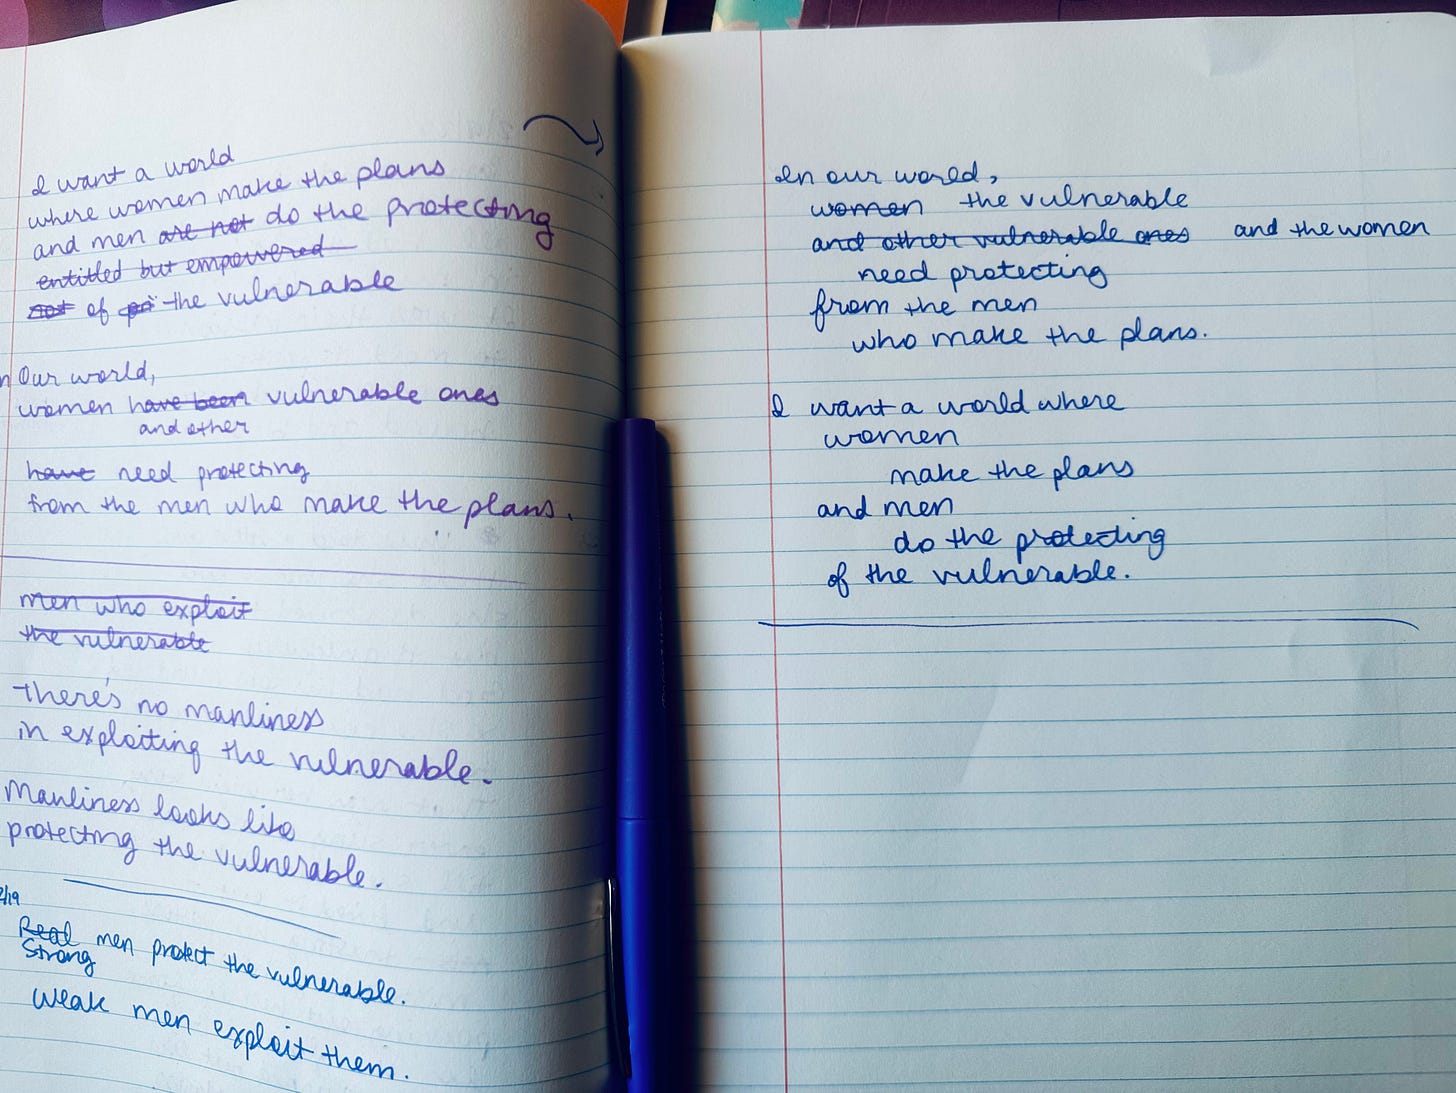 I want a world
where women make the plans
and men are not do the protecting
entitled but empowered
not of pri the vulnerable
In Our world,
women have been vulnerable ones
and other
have need protecting
from the men who make the plans.
men who exploit
the vulnerable
There's no manliness
in exploiting the vulnerable.
Manliness looks like
protecting the vulnerable.
2/19
Real men protect the vulnerable.
Strong
Weak men exploit them.
In our world,
women the vulnerable
and other vulnerable ones and the women
need protecting
from the men
who make the plans.
I want a world where
women
make the plans
and men
do the protecting
of the vulnerable.